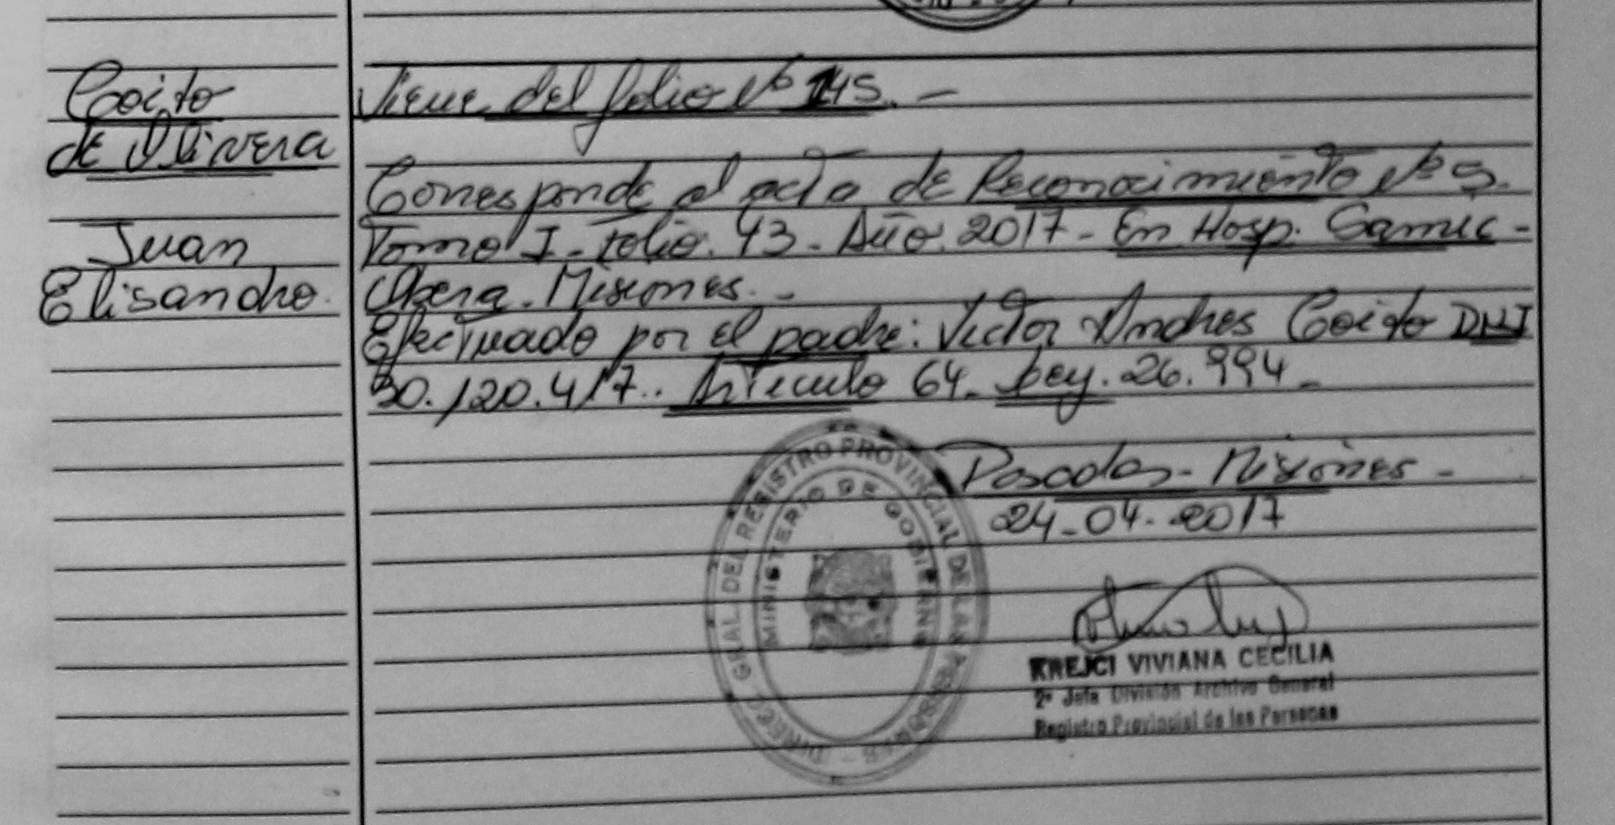 Coito
de Olivera
Juan
Elisandro.
Viene del folio Nº 145. -
Corresponde al acta de Reconocimiento Nº 9.
Tomo I - Folio. 43 - Año. 2017 - En Hosp. Samic -
Obera. Misiones. -
Efectuado por el padre: Victor Andres Coito DNI
30.120.417.. Articulo 64 - Ley. 26.994 -
Posadas - Misiones -
24-04-2017
DIREC. GRAL. DEL REGISTRO PROVINCIAL DE LAS PERSONAS -
MINISTERIO DE GOBIERNO
KREJCI VIVIANA CECILIA
2º Jefa División Archivo General
Registro Provincial de las Personas